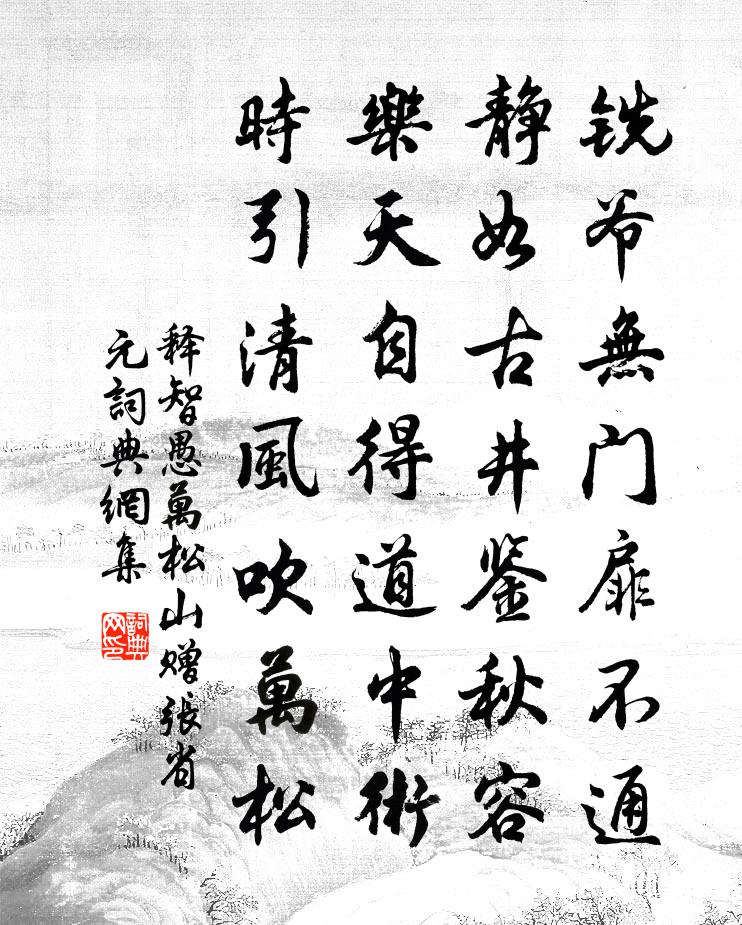 铣爷無門扉不通
静如古井鉴秋容
樂天自得道中術
時引清風吹萬松
释智愚萬松山赠張省
元詞典網集
詞典網印